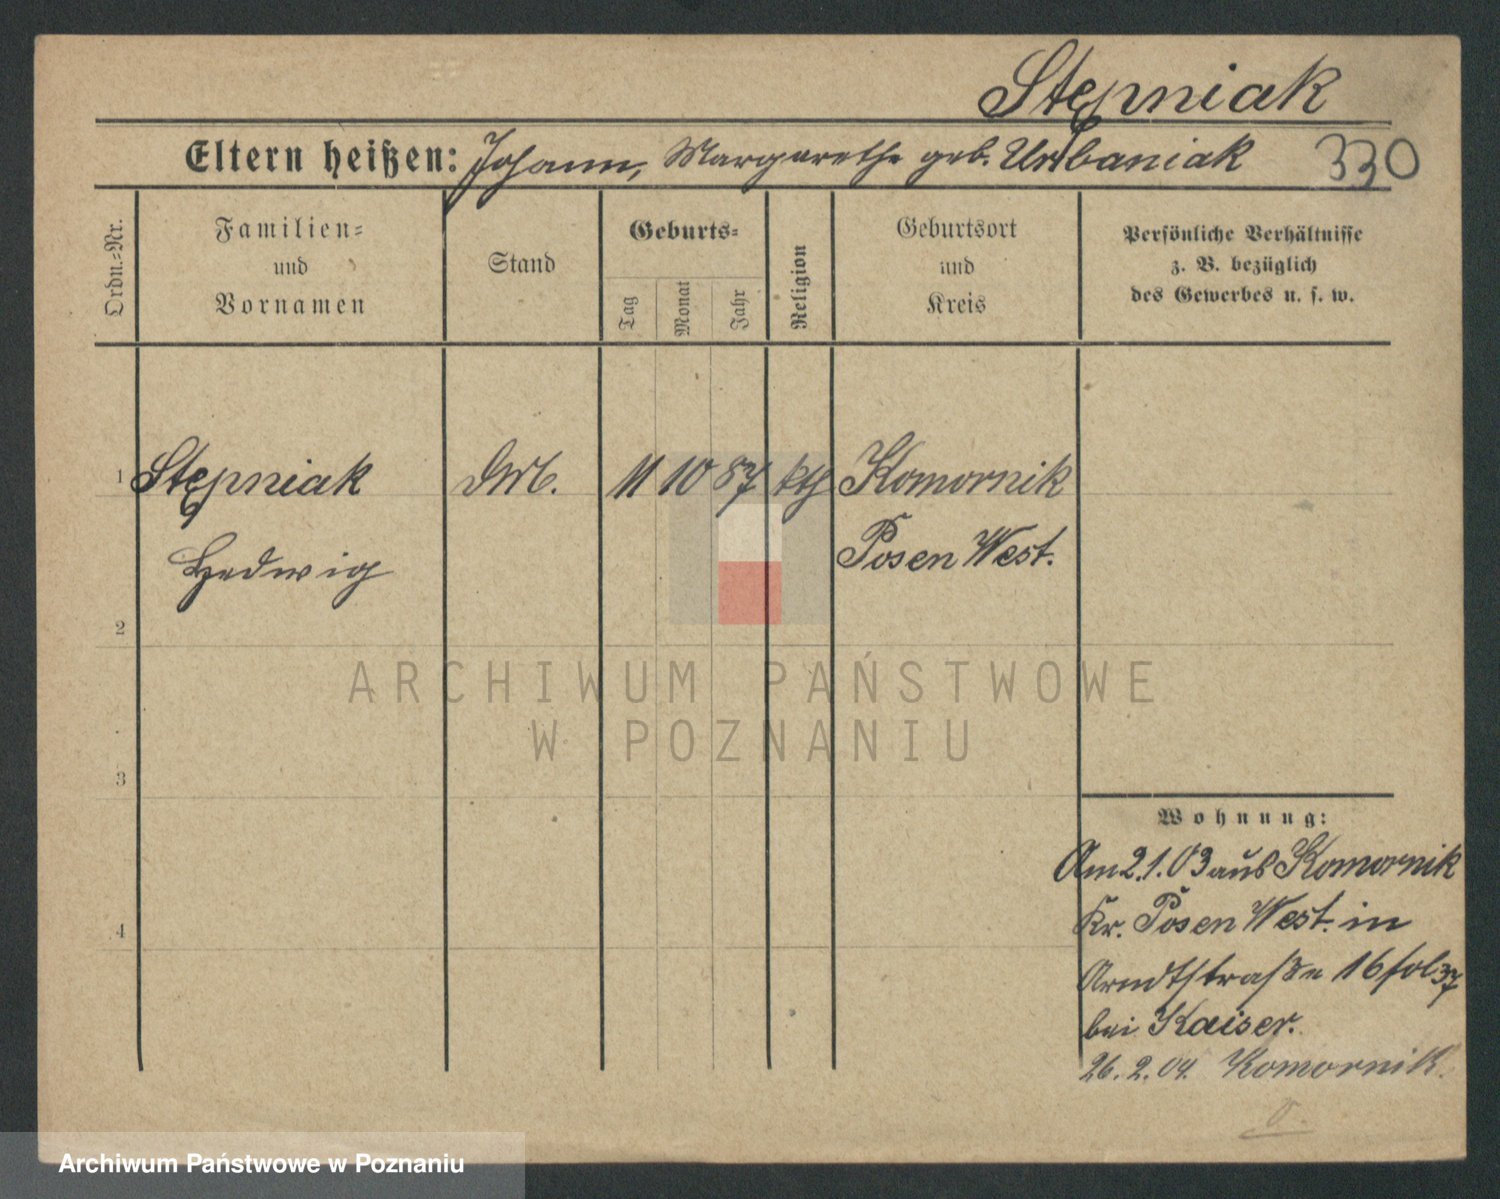 Stępniak
Eltern heißen: Johann, Margarethe geb. Urbaniak 330
Ordn.-Nr.
Familien-
und
Vornamen
Stand
Geburts-
Tag
Monat
Jahr
Religion
Geburtsort
und
Kreis
Persönliche Verhältnisse
z. B. bezüglich
des Gewerbes u. s. w.
1 Stępniak 11 10 87 kth Komornik
Hedwig Posen West.
2
3
4
Wohnung:
Am 2.1.03 aus Komornik
Kr. Posen West. in
Arndtstraße 16 fol 37
bei Kaiser.
26.2.04. Komornik.
ARCHIWUM PAŃSTWOWE
W POZNANIU
Archiwum Państwowe w Poznaniu